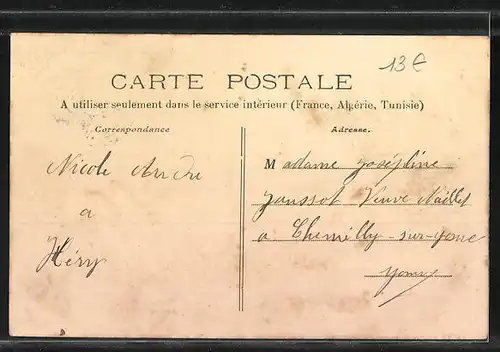 13 €
CARTE POSTALE
A utiliser seulement dans le service intérieur (France, Algérie, Tunisie)
Correspondance
Adresse.
Nicole
a
Héry
Madame Joséphine
Veuve
a Chemilly-sur-Yonne
Yonne